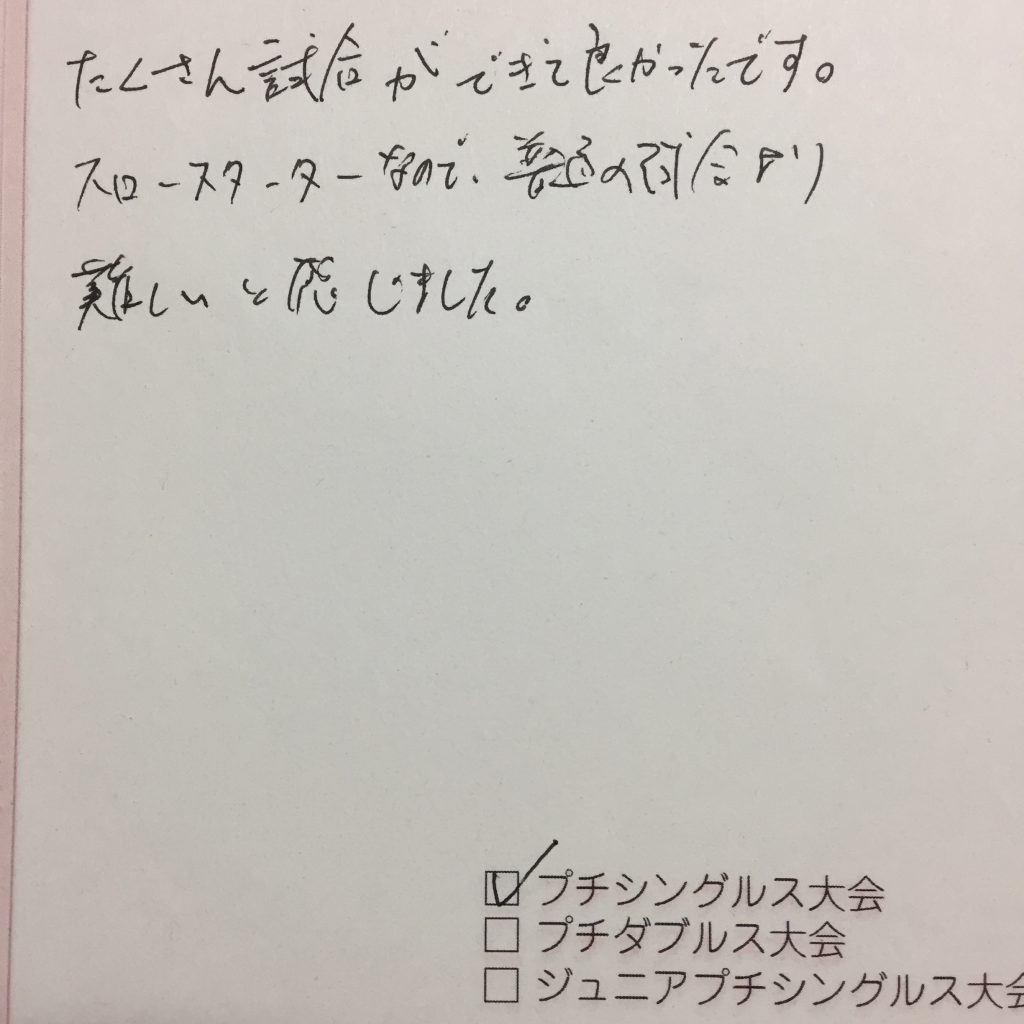 たくさん試合ができて良かったです。
スロースターターなので、普通の試合より
難しいと感じました。
プチシングルス大会
プチダブルス大会
ジュニアプチシングルス大会